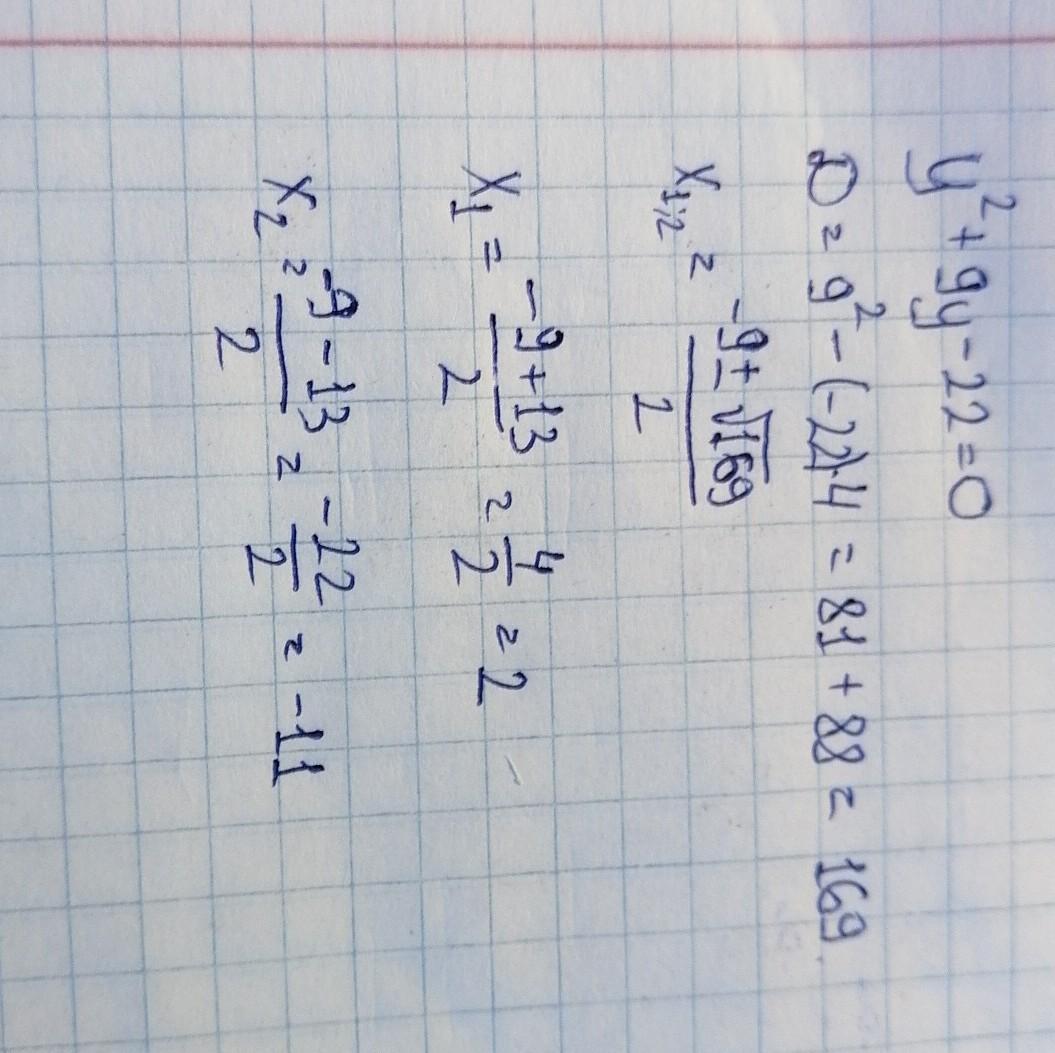 y² + 9y - 22 = 0
D = 9² - (-22)·4 = 81 + 88 = 169
x₁,₂ = (-9 ± √169)/2
x₁ = (-9 + 13)/2 = 4/2 = 2
x₂ = (-9 - 13)/2 = -22/2 = -11